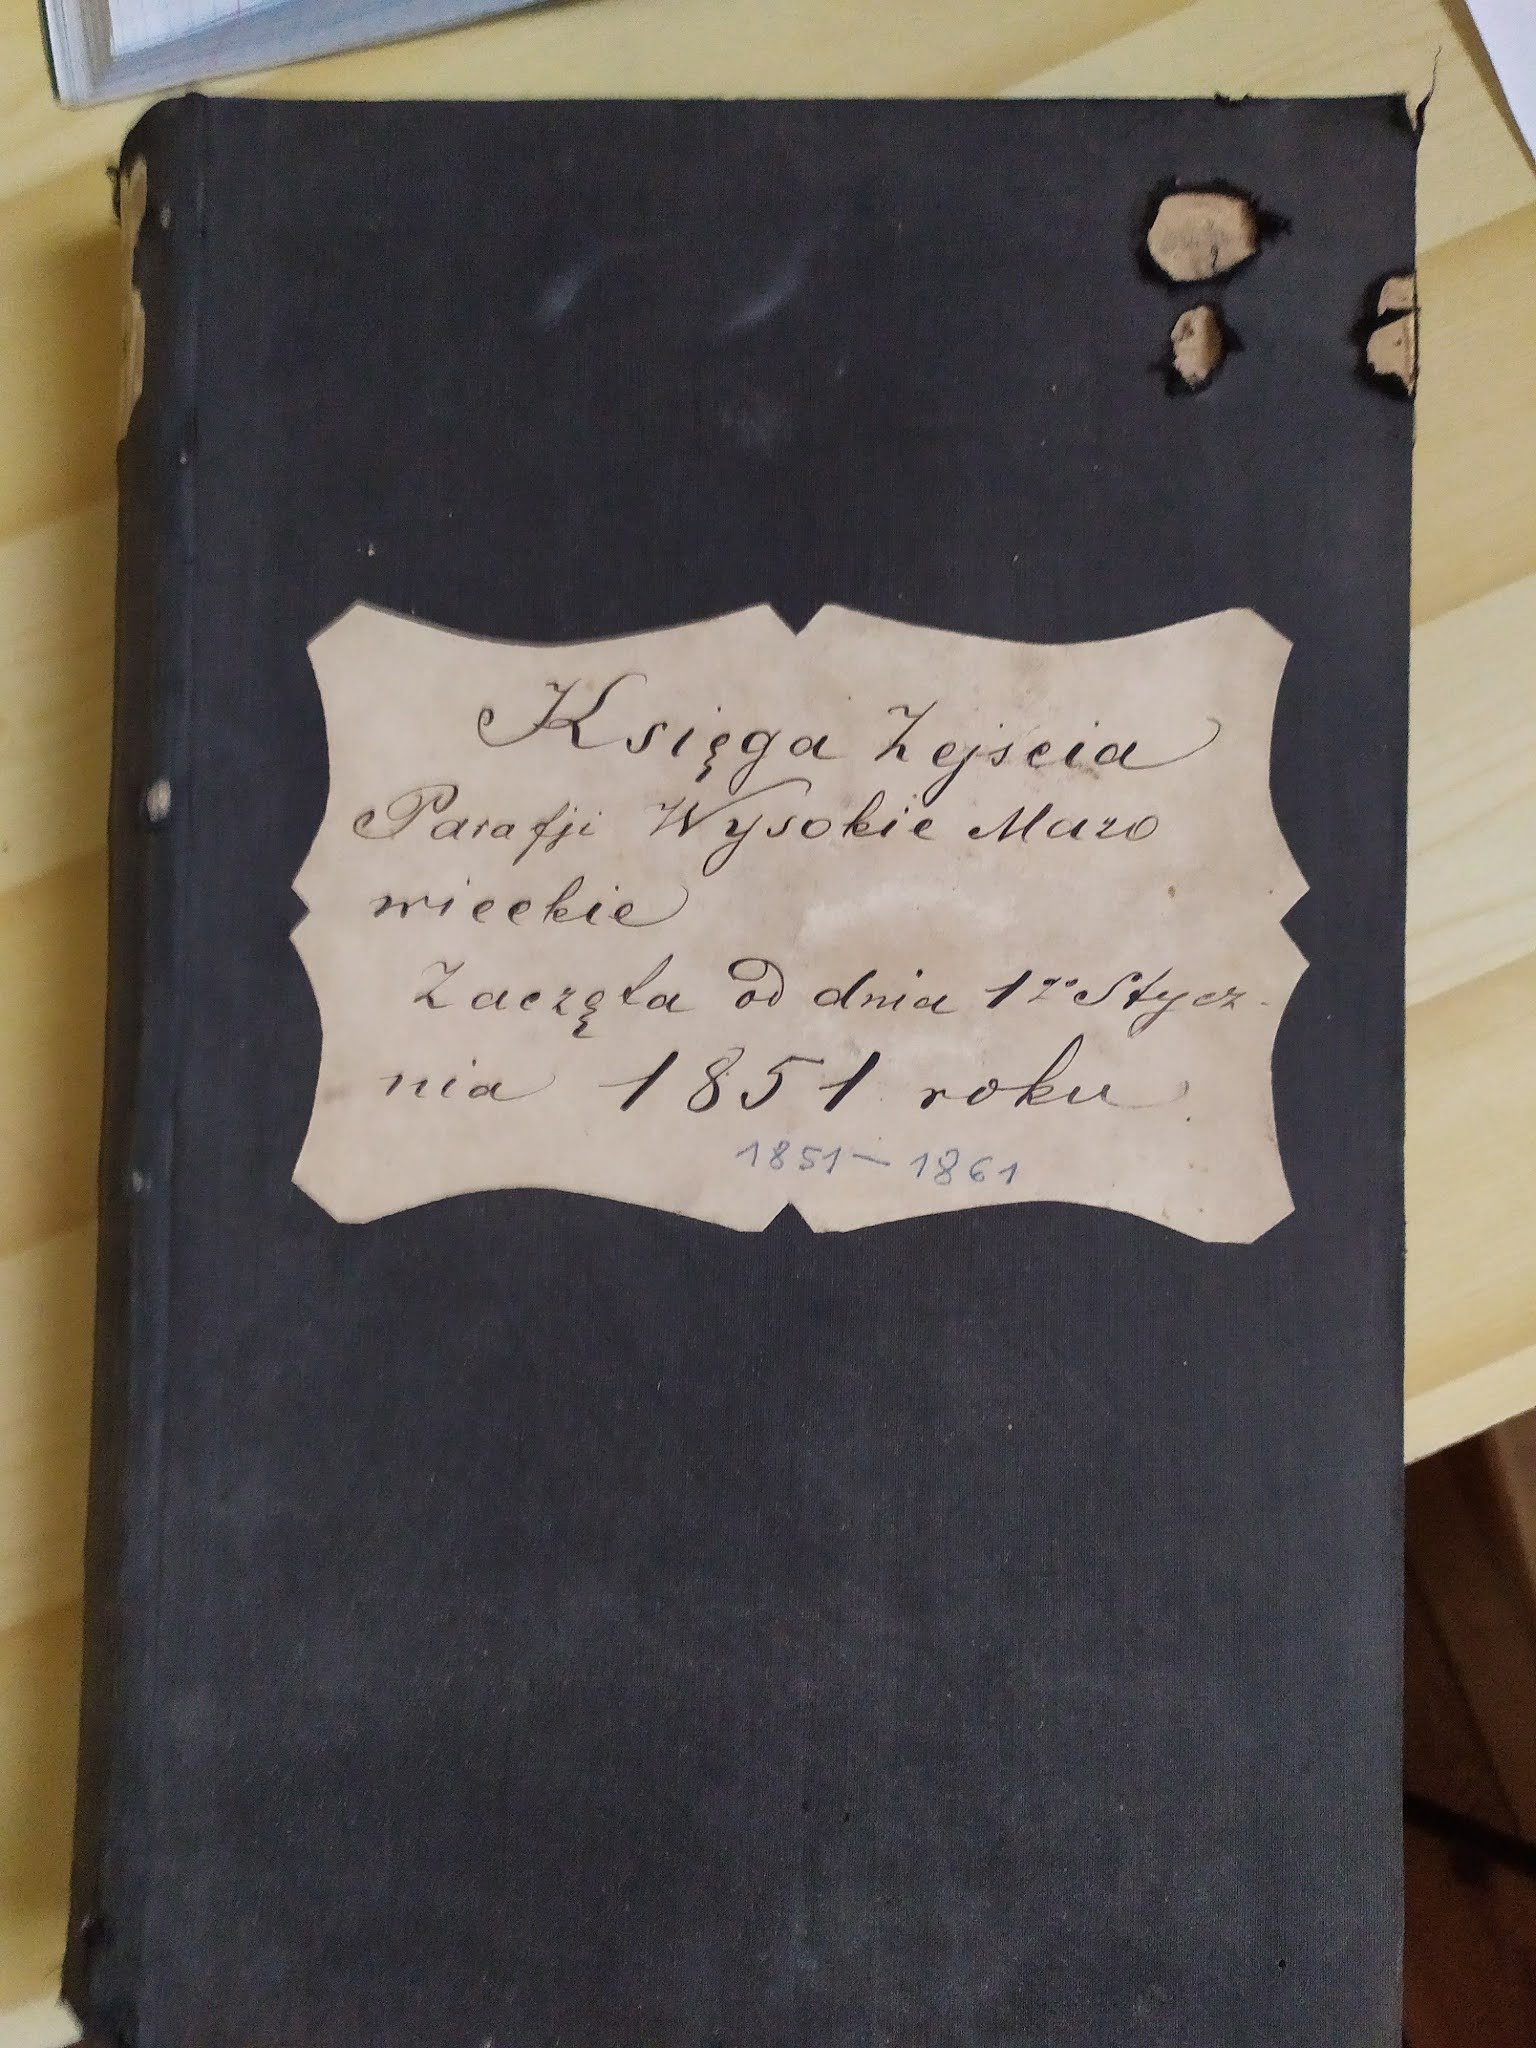 Księga Zejścia
Parafji Wysokie Mazo
wieckie
Zaczęta od dnia 1go Stycz-
nia 1851 roku.
1851 — 1861